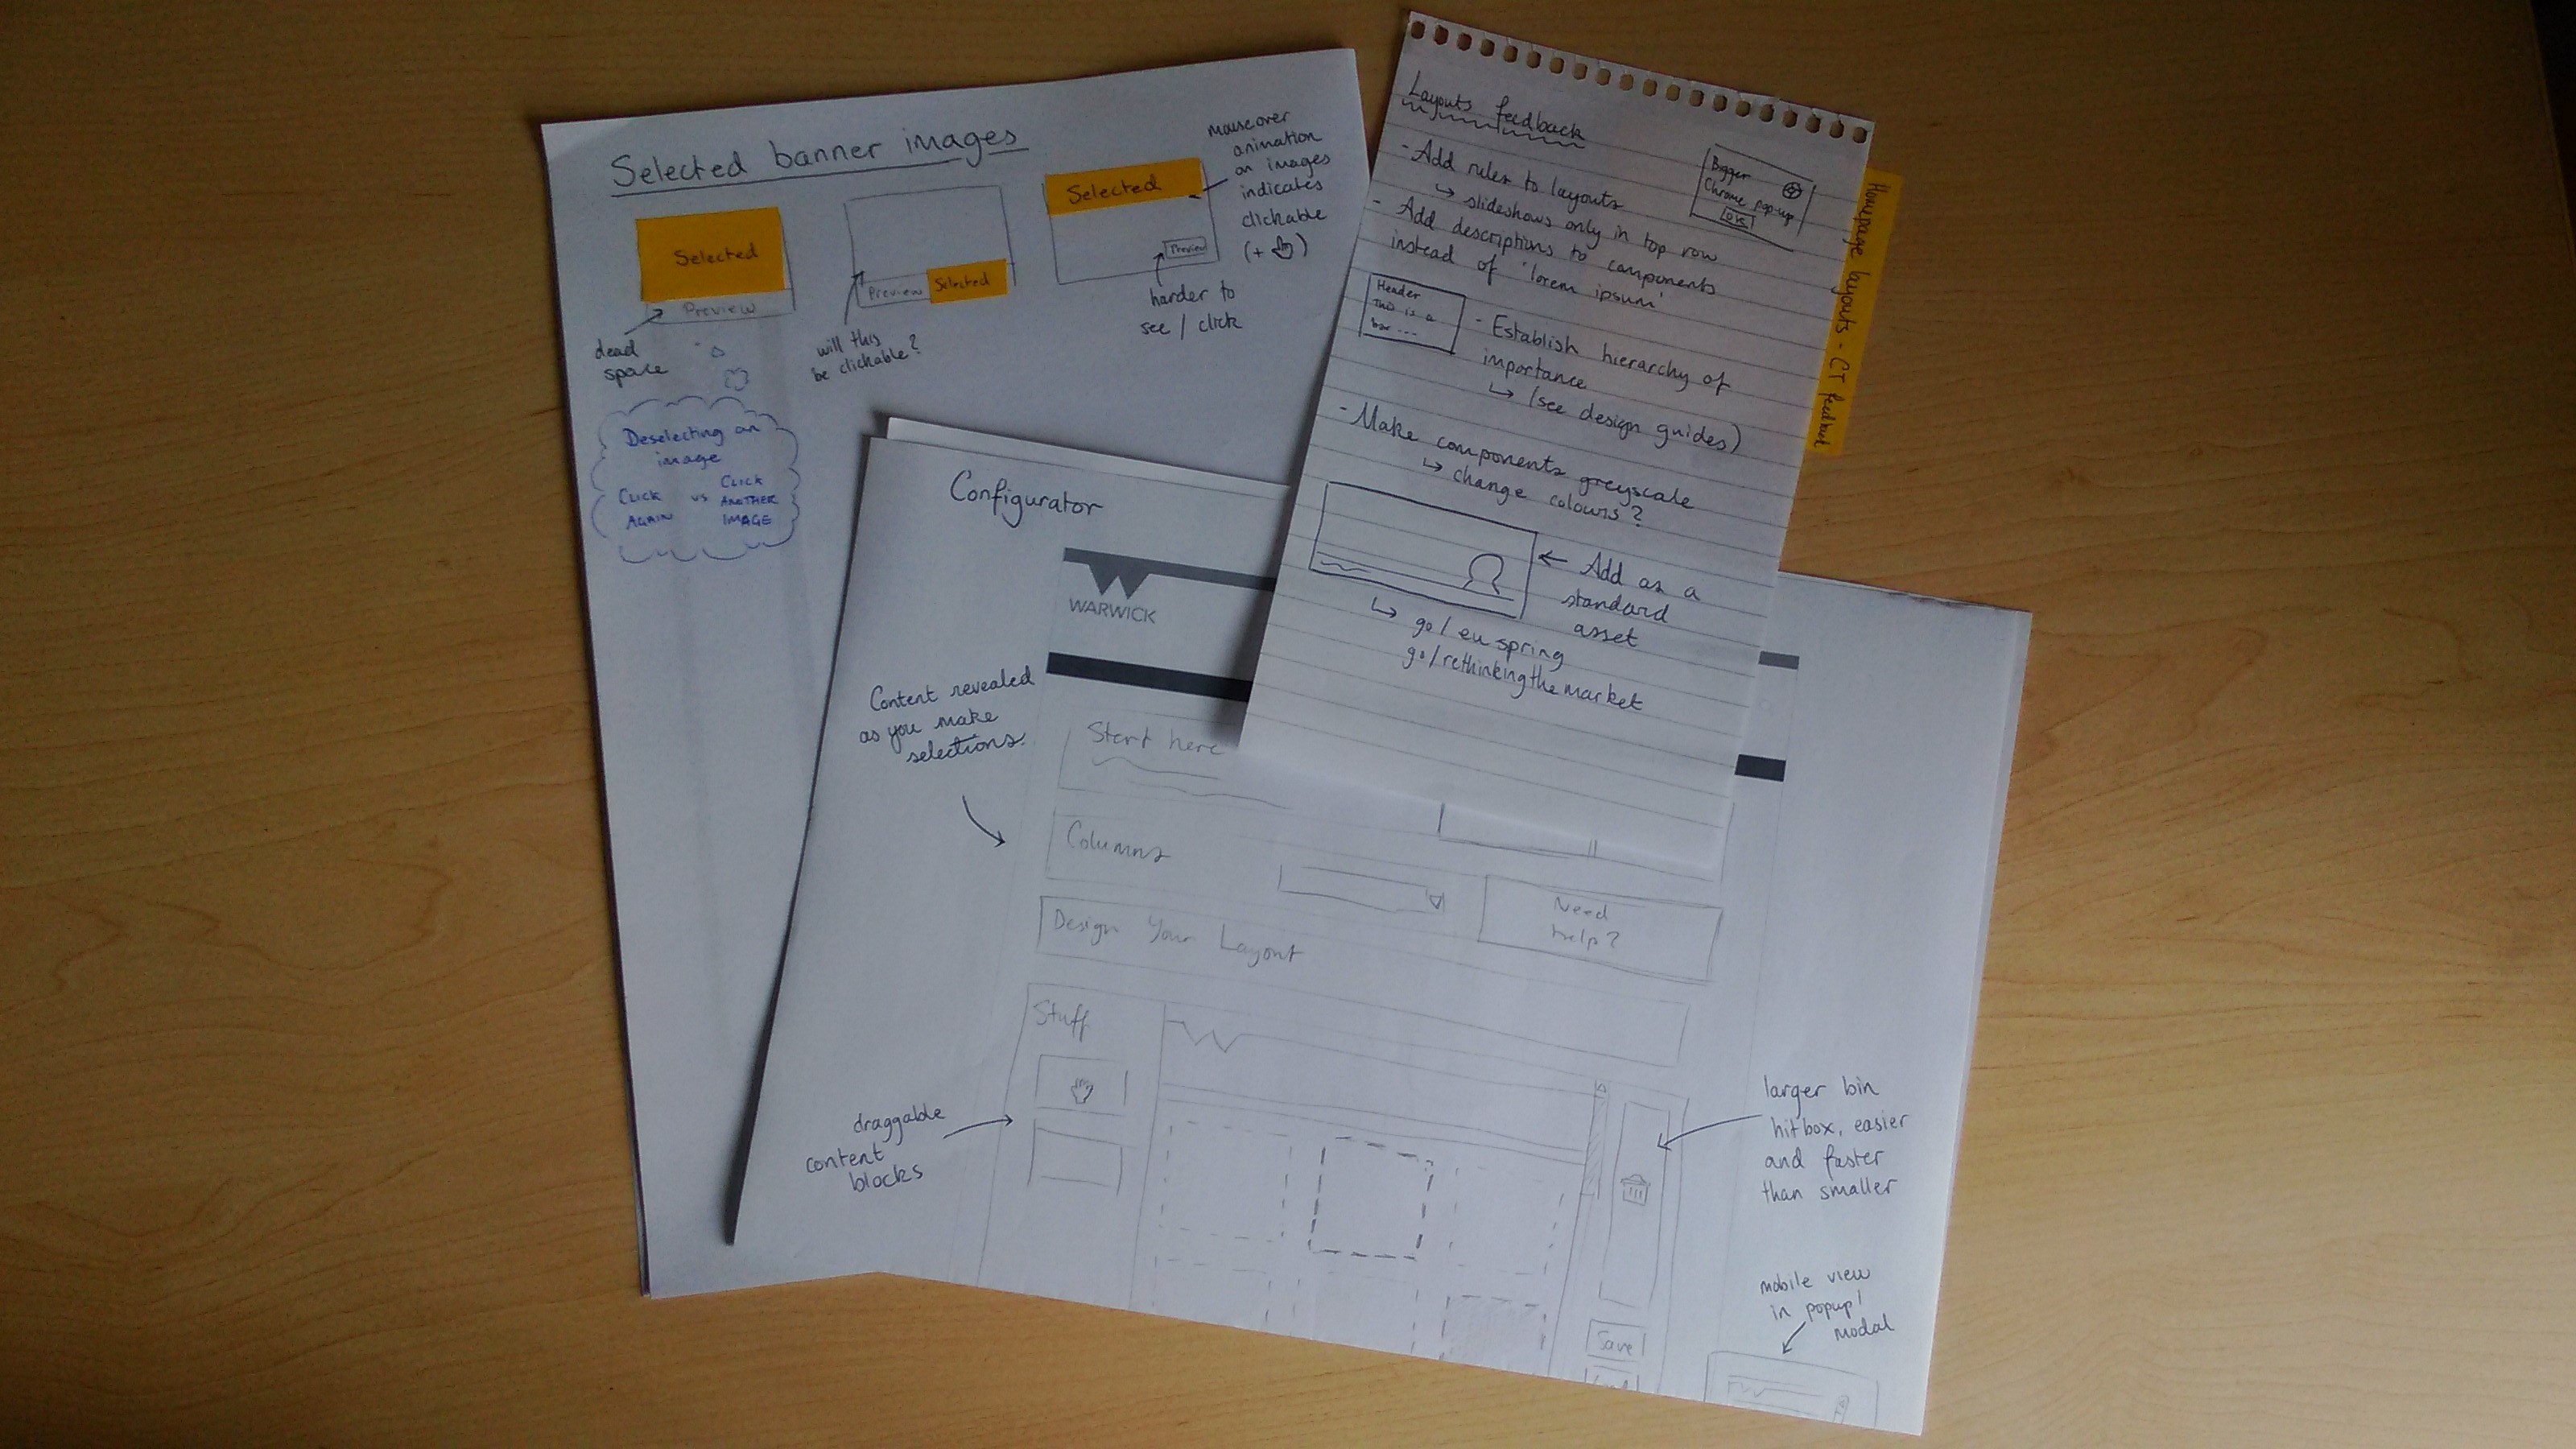 Selected banner images
Selected
Preview
dead
space
Preview
Selected
will this
be clickable?
Selected
Preview
harder to
see / click
mouseover
animation
on images
indicates
clickable
(+
)
Deselecting an
image
CLICK
AGAIN
vs
CLICK
ANOTHER
IMAGE
Layouts feedback
- Add rules to layouts
↳ slideshows only in top row
- Add descriptions to components
instead of 'lorem ipsum'
Bigger
Chrome pop-up
OK
Header
This is a
box ...
- Establish hierarchy of
importance
↳ (see design guides)
- Make components greyscale
↳ change colours?
← Add as a
standard
asset
↳ go/euspring
go/rethinkingthemarket
Homepage layouts - CT feedback
Configurator
WARWICK
Content revealed
as you make
selections.
Start here
Columns
Need
help?
Design Your Layout
Stuff
draggable
content
blocks
larger bin
hitbox, easier
and faster
than smaller
Save
mobile view
in popup/
modal